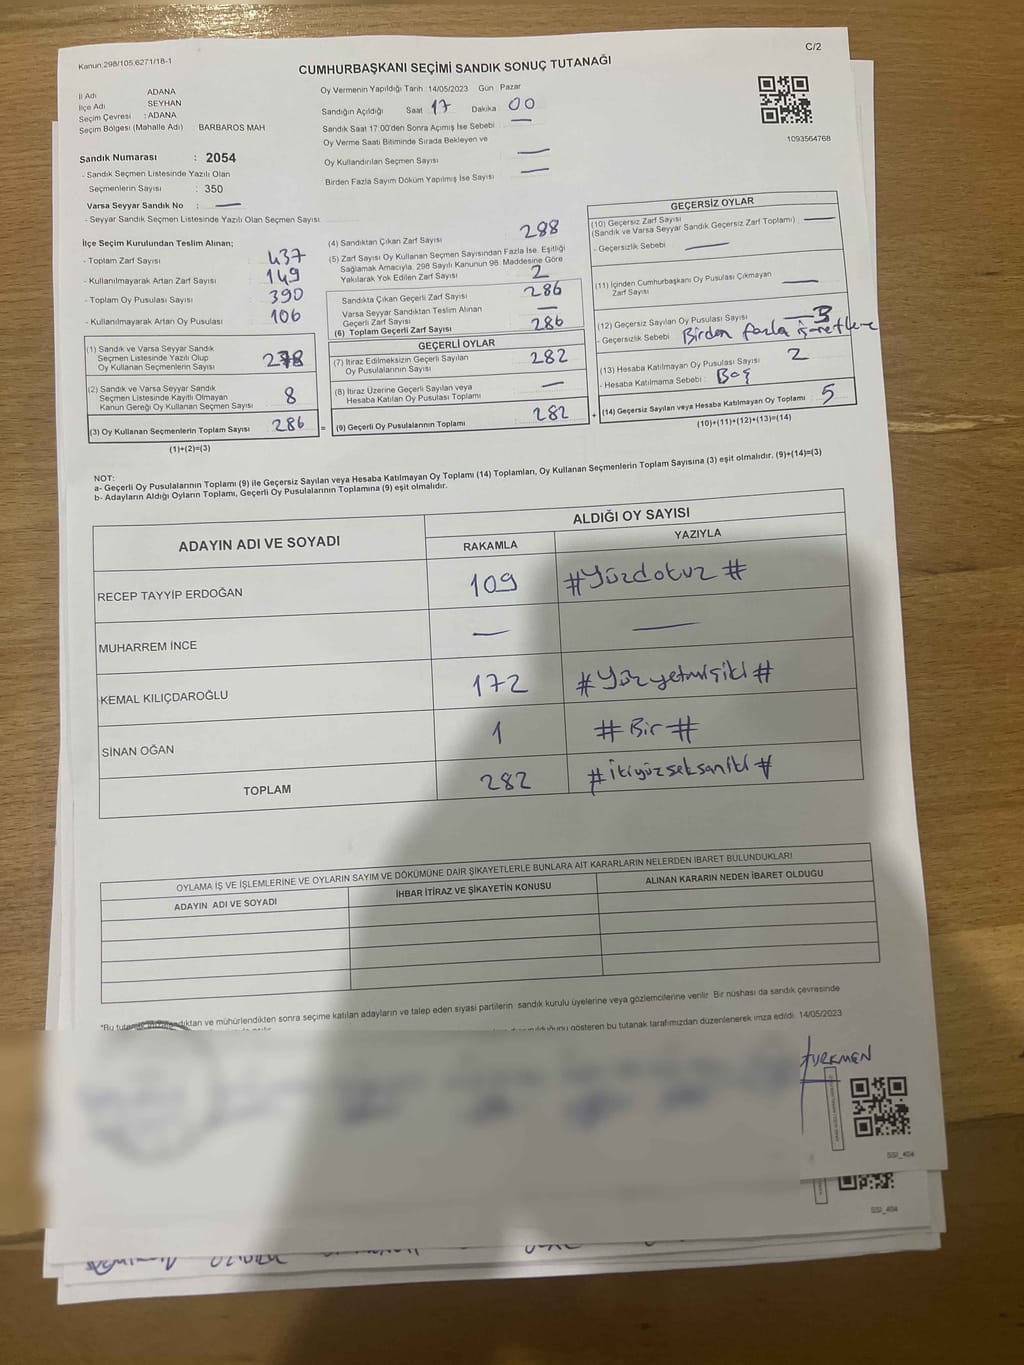 Kanun:298/105,6271/18-1
C/2
CUMHURBAŞKANI SEÇİMİ SANDIK SONUÇ TUTANAĞI
İl Adı ADANA
İlçe Adı SEYHAN
Seçim Çevresi : ADANA
Seçim Bölgesi (Mahalle Adı) BARBAROS MAH
Sandık Numarası : 2054
- Sandık Seçmen Listesinde Yazılı Olan
Seçmenlerin Sayısı : 350
Varsa Seyyar Sandık No : —
- Seyyar Sandık Seçmen Listesinde Yazılı Olan Seçmen Sayısı
Oy Vermenin Yapıldığı Tarih 14/05/2023 Gün Pazar
Sandığın Açıldığı Saat 17 Dakika 00
Sandık Saat 17:00'den Sonra Açımış İse Sebebi —
Oy Verme Saati Bitiminde Sırada Bekleyen ve
Oy Kullandırılan Seçmen Sayısı —
Birden Fazla Sayım Döküm Yapılmış İse Sayısı —
1093564768
İlçe Seçim Kurulundan Teslim Alınan;
- Toplam Zarf Sayısı 437
- Kullanılmayarak Artan Zarf Sayısı 149
- Toplam Oy Pusulası Sayısı 390
- Kullanılmayarak Artan Oy Pusulası 106
(1) Sandık ve Varsa Seyyar Sandık
Seçmen Listesinde Yazılı Olup
Oy Kullanan Seçmenlerin Sayısı 278
(2) Sandık ve Varsa Seyyar Sandık
Seçmen Listesinde Kayıtlı Olmayan
Kanun Gereği Oy Kullanan Seçmen Sayısı 8
(3) Oy Kullanan Seçmenlerin Toplam Sayısı 286
(1)+(2)=(3)
(4) Sandıktan Çıkan Zarf Sayısı 288
(5) Zarf Sayısı Oy Kullanan Seçmen Sayısından Fazla İse, Eşitliği
Sağlamak Amacıyla; 298 Sayılı Kanunun 98. Maddesine Göre
Yakılarak Yok Edilen Zarf Sayısı 2
Sandıkta Çıkan Geçerli Zarf Sayısı 286
Varsa Seyyar Sandıktan Teslim Alınan
Geçerli Zarf Sayısı —
(6) Toplam Geçerli Zarf Sayısı 286
GEÇERLİ OYLAR
(7) İtiraz Edilmeksizin Geçerli Sayılan
Oy Pusulasının Sayısı 282
(8) İtiraz Üzerine Geçerli Sayılan veya
Hesaba Katılan Oy Pusulası Toplamı —
= (9) Geçerli Oy Pusulalarının Toplamı 282 +
GEÇERSİZ OYLAR
(10) Geçersiz Zarf Sayısı —
(Sandık ve Varsa Seyyar Sandık Geçersiz Zarf Toplamı)
- Geçersizlik Sebebi : —
(11) İçinden Cumhurbaşkanı Oy Pusulası Çıkmayan
Zarf Sayısı —
(12) Geçersiz Sayılan Oy Pusulası Sayısı 3
- Geçersizlik Sebebi Birden fazla işaretleme
(13) Hesaba Katılmayan Oy Pusulası Sayısı 2
- Hesaba Katılmama Sebebi : Boş
(14) Geçersiz Sayılan veya Hesaba Katılmayan Oy Toplamı 5
(10)+(11)+(12)+(13)=(14)
NOT:
a- Geçerli Oy Pusulalarının Toplamı (9) ile Geçersiz Sayılan veya Hesaba Katılmayan Oy Toplamı (14) Toplamları, Oy Kullanan Seçmenlerin Toplam Sayısına (3) eşit olmalıdır. (9)+(14)=(3)
b- Adayların Aldığı Oyların Toplamı, Geçerli Oy Pusulalarının Toplamına (9) eşit olmalıdır.
ADAYIN ADI VE SOYADI
ALDIĞI OY SAYISI
RAKAMLA YAZIYLA
RECEP TAYYİP ERDOĞAN 109 #Yüzdokuz#
MUHARREM İNCE — —
KEMAL KILIÇDAROĞLU 172 #Yüzyetmişiki#
SİNAN OĞAN 1 #Bir#
TOPLAM 282 #ikiyüzseksaniki#
OYLAMA İŞ VE İŞLEMLERİNE VE OYLARIN SAYIM VE DÖKÜMÜNE DAİR ŞİKAYETLERLE BUNLARA AİT KARARLARIN NELERDEN İBARET BULUNDUKLARI
ADAYIN ADI VE SOYADI İHBAR İTİRAZ VE ŞİKAYETİN KONUSU ALINAN KARARIN NEDEN İBARET OLDUĞU
ve mühürlendikten sonra seçime katılan adayların ve talep eden siyasi partilerin sandık kurulu üyelerine veya gözlemcilerine verilir. Bir nüshası da sandık çevresinde
gösteren bu tutanak tarafımızdan düzenlenerek imza edildi. 14/05/2023
SSI_404
SSI_404